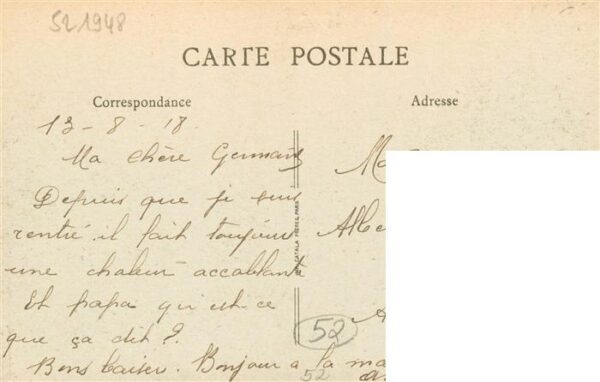 521948
CARTE POSTALE
Correspondance
Adresse
13-8-18.
Ma chère Germaine
Depuis que je suis
rentré il fait toujours
une chaleur accablante
Et papa qu'est-ce
que ça dit ?
Bons baiser. Bonjour a la ma
CATALA FRÈRES, PARIS
52
52